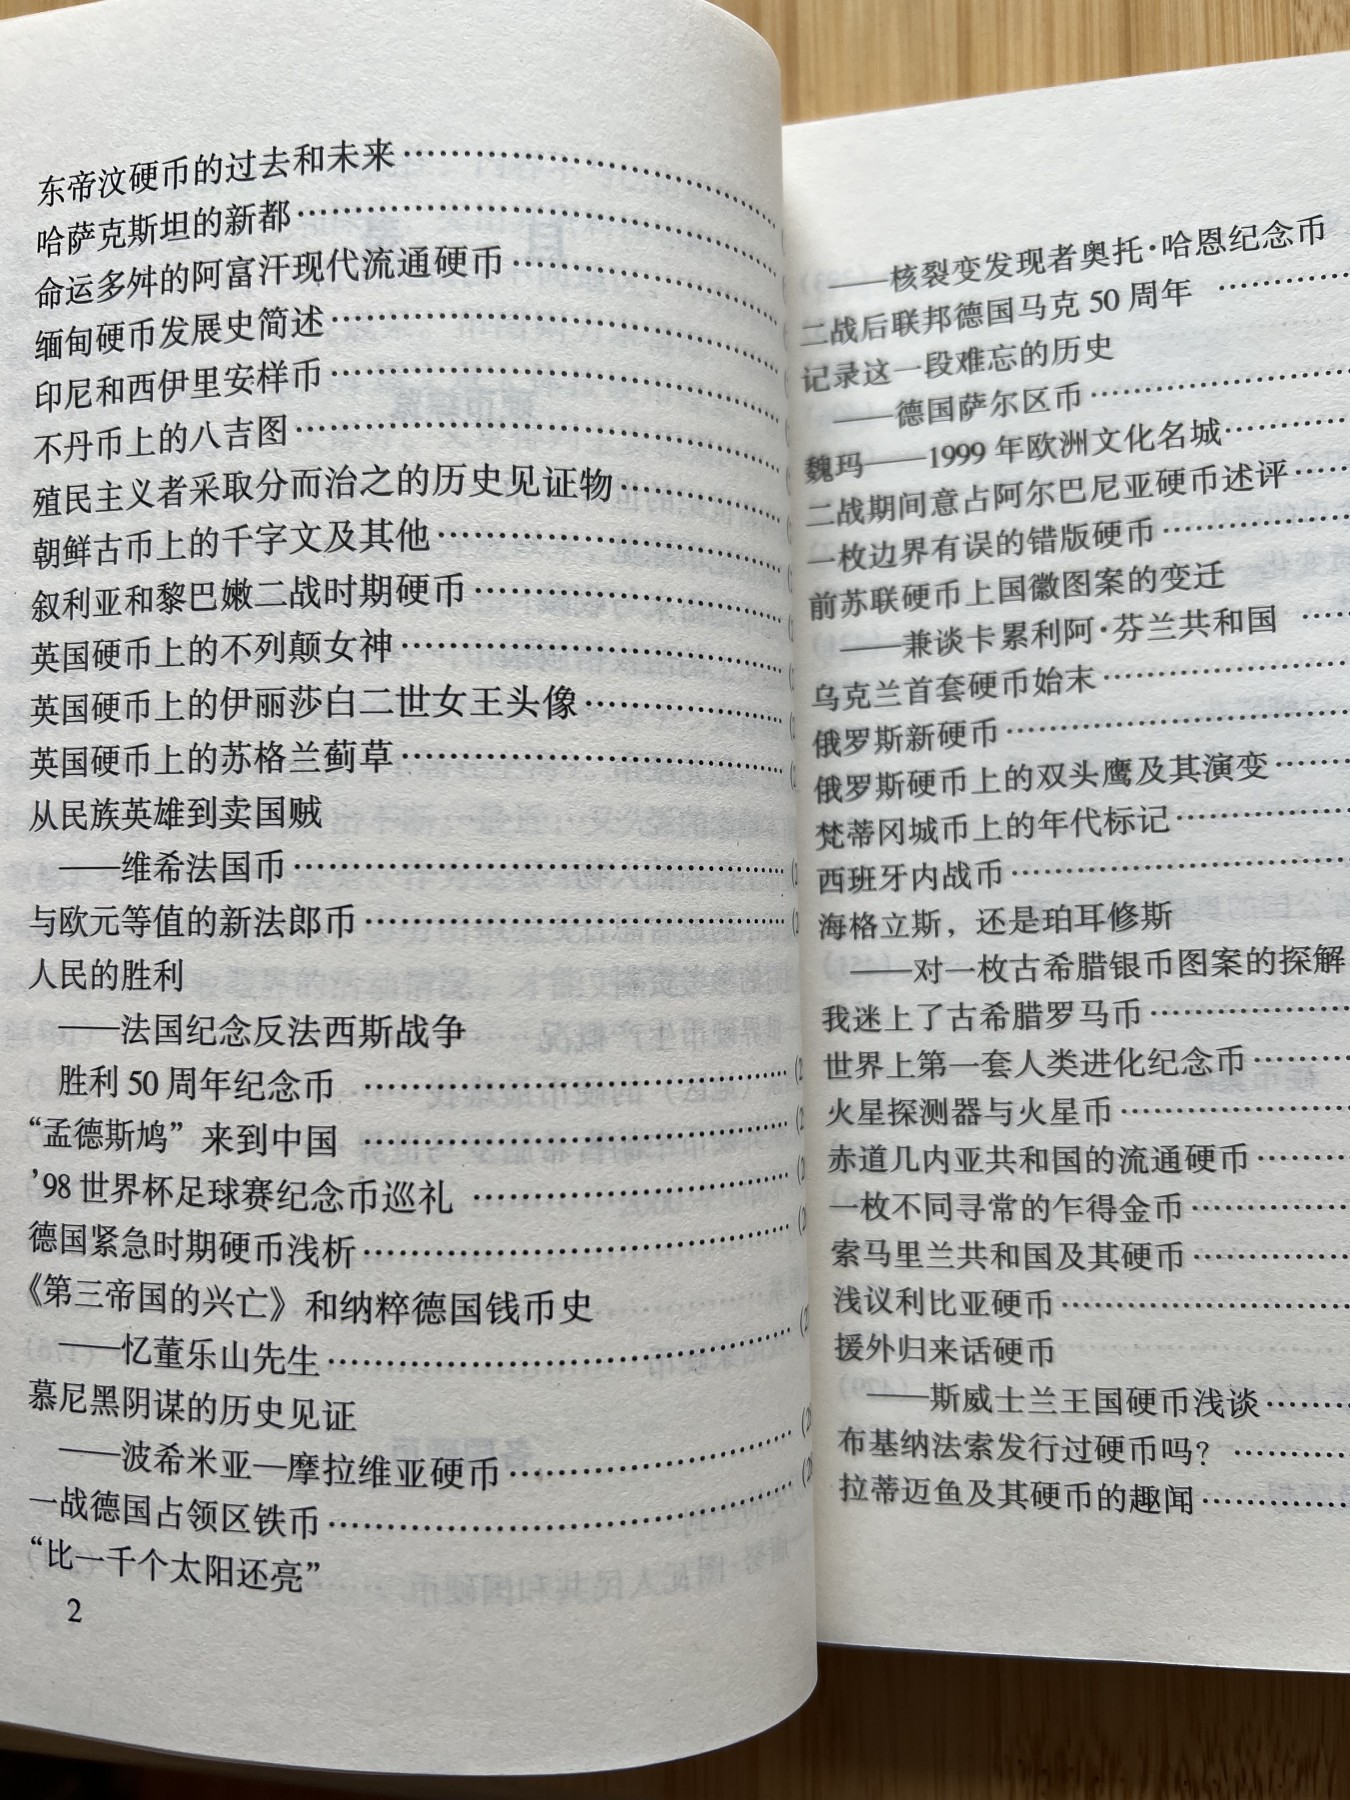 东帝汶硬币的过去和未来
哈萨克斯坦的新都
命运多舛的阿富汗现代流通硬币
缅甸硬币发展史简述
印尼和西伊里安样币
不丹币上的八吉图
殖民主义者采取分而治之的历史见证物
朝鲜古币上的千字文及其他
叙利亚和黎巴嫩二战时期硬币
英国硬币上的不列颠女神
英国硬币上的伊丽莎白二世女王头像
英国硬币上的苏格兰蓟草
从民族英雄到卖国贼
——维希法国币
与欧元等值的新法郎币
人民的胜利
——法国纪念反法西斯战争
胜利50周年纪念币
“孟德斯鸠”来到中国
’98世界杯足球赛纪念币巡礼
德国紧急时期硬币浅析
《第三帝国的兴亡》和纳粹德国钱币史
——忆董乐山先生
慕尼黑阴谋的历史见证
——波希米亚—摩拉维亚硬币
一战德国占领区铁币
“比一千个太阳还亮”
2
——核裂变发现者奥托·哈恩纪念币
二战后联邦德国马克50周年
记录这一段难忘的历史
——德国萨尔区币
魏玛——1999年欧洲文化名城
二战期间意占阿尔巴尼亚硬币述评
一枚边界有误的错版硬币
前苏联硬币上国徽图案的变迁
——兼谈卡累利阿·芬兰共和国
乌克兰首套硬币始末
俄罗斯新硬币
俄罗斯硬币上的双头鹰及其演变
梵蒂冈城币上的年代标记
西班牙内战币
海格立斯，还是珀耳修斯
——对一枚古希腊银币图案的探解
我迷上了古希腊罗马币
世界上第一套人类进化纪念币
火星探测器与火星币
赤道几内亚共和国的流通硬币
一枚不同寻常的乍得金币
索马里兰共和国及其硬币
浅议利比亚硬币
援外归来话硬币
——斯威士兰王国硬币浅谈
布基纳法索发行过硬币吗？
拉蒂迈鱼及其硬币的趣闻